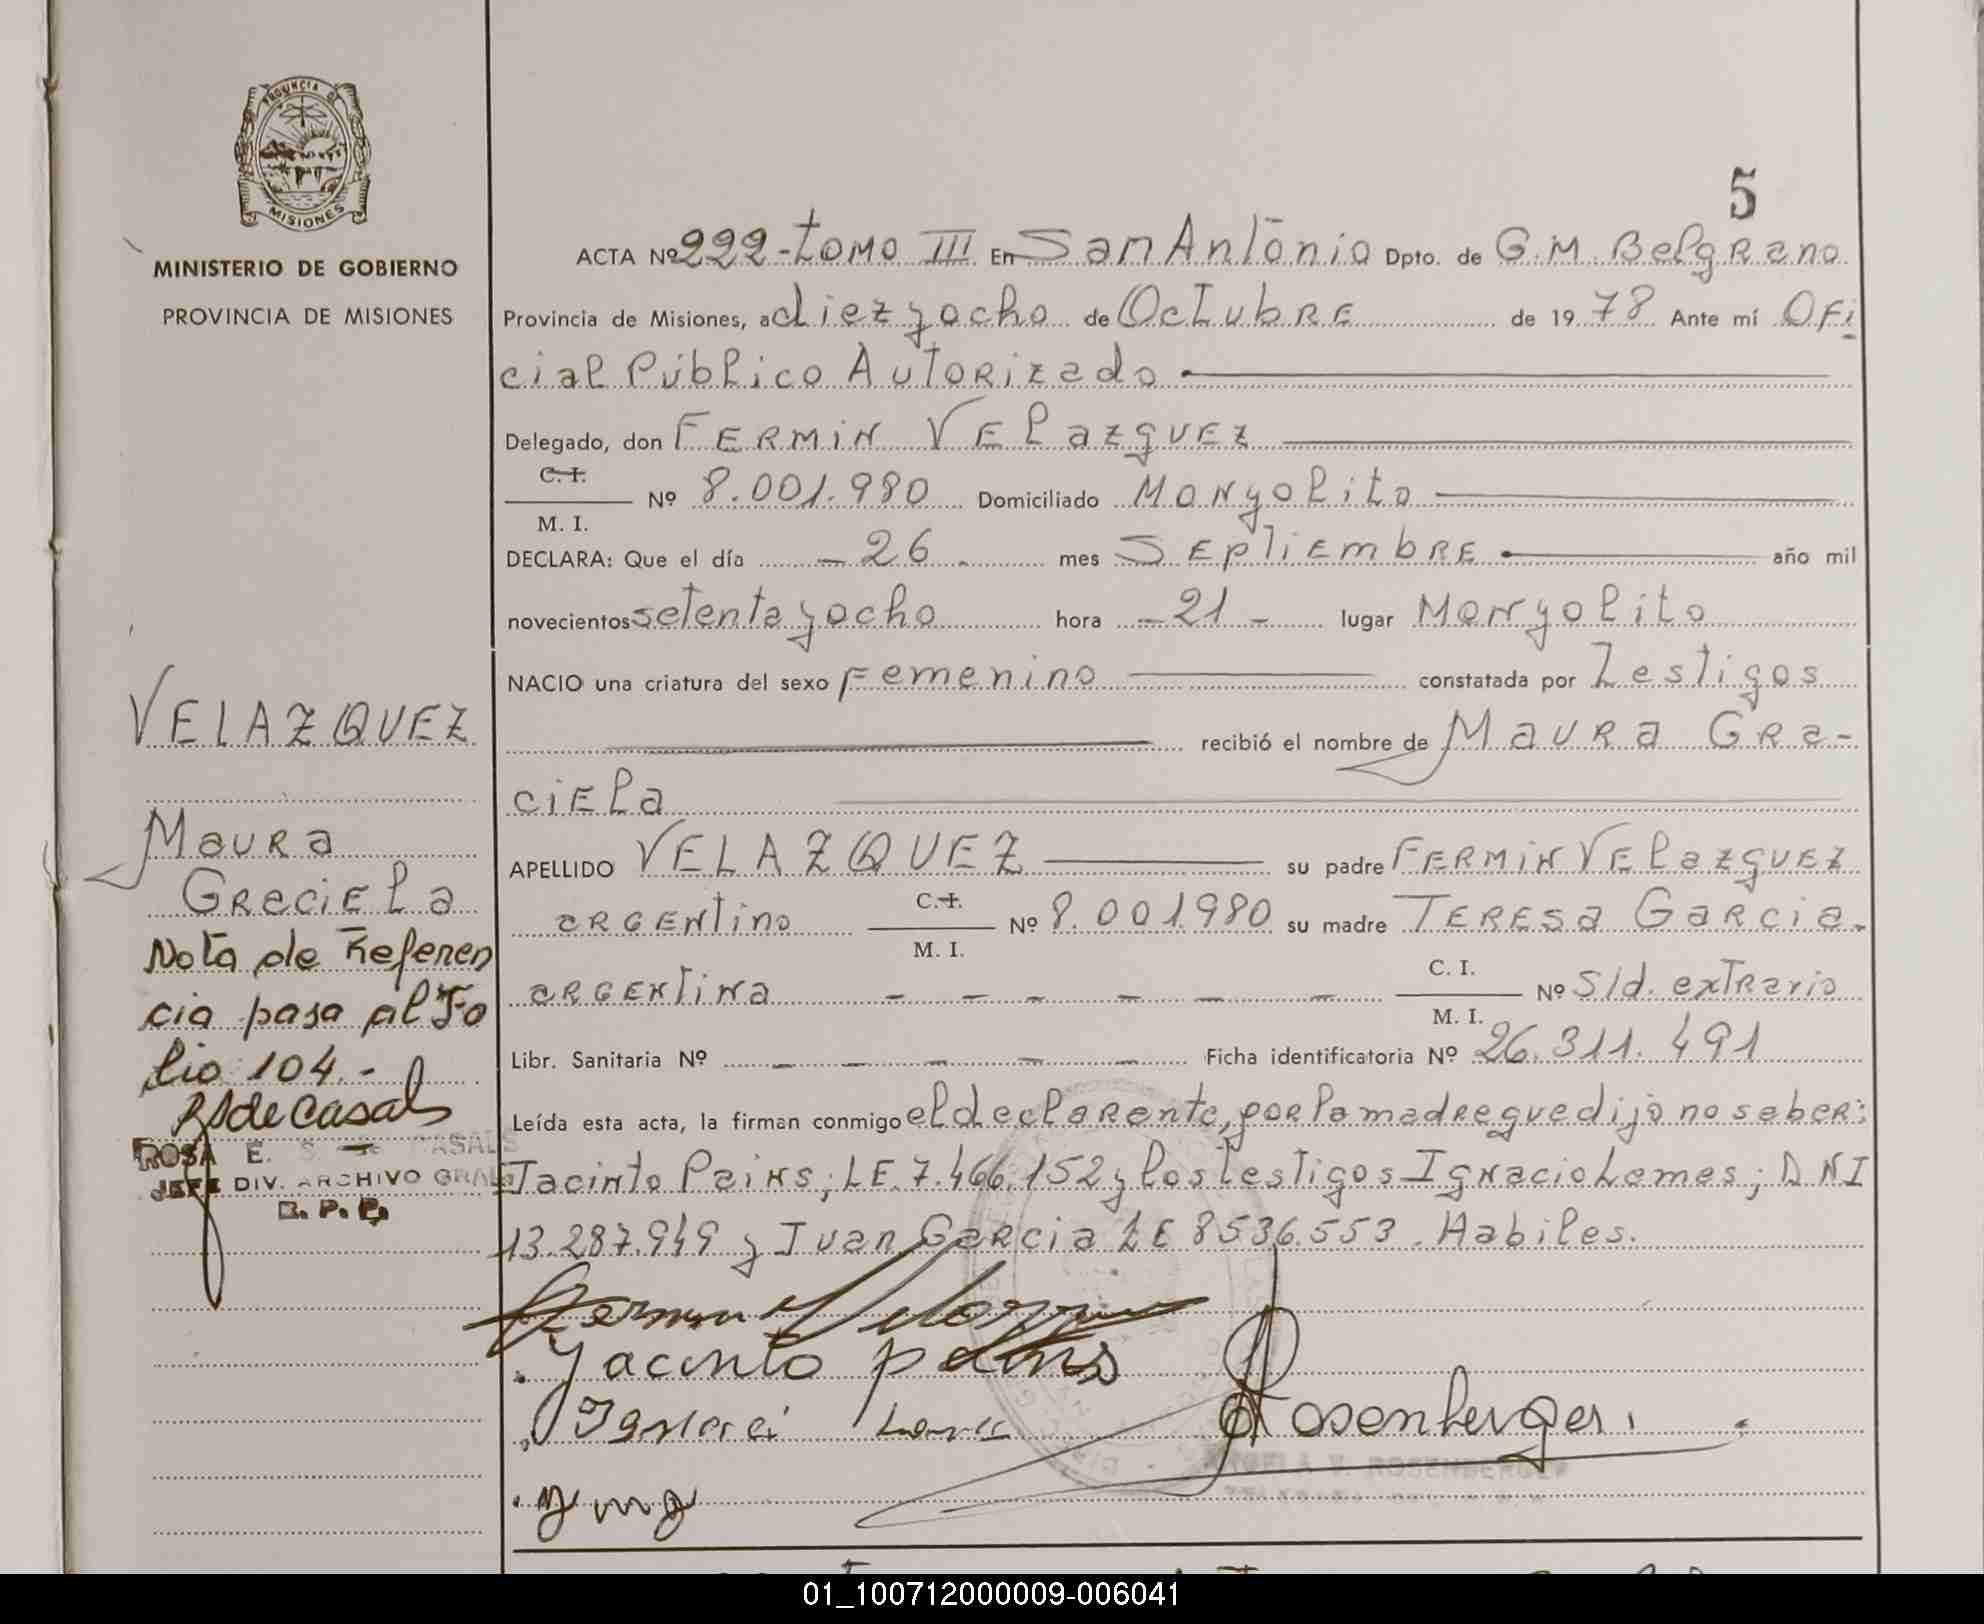 PROVINCIA DE
MISIONES
MINISTERIO DE GOBIERNO
PROVINCIA DE MISIONES
5
ACTA Nº 222-tomo III En San Antonio Dpto. de G.M. Belgrano
Provincia de Misiones, a diez y ocho de Octubre de 1978 Ante mí Ofi
cial Público Autorizado
Delegado, don FERMIN VELazquez
C.I.
M. I. Nº 8.001.980 Domiciliado Monyolito
DECLARA: Que el día -26. mes Septiembre año mil
novecientos setenta y ocho hora -21- lugar Monyolito
NACIO una criatura del sexo Femenino constatada por Testigos
recibió el nombre de Maura Gra-
ciela
APELLIDO VELAZQUEZ su padre FERMIN VELazquez
argentino C.I.
M. I. Nº 8.001.980 su madre TERESa Garcia.
argentina - - - - - - C. I.
M. I. Nº S/d. extravio
Libr. Sanitaria Nº - - - - - Ficha identificatoria Nº 26.311.491
Leída esta acta, la firman conmigo el declarante, por la madre que dijo no saber:
Jacinto Pains; LE.7.466.152 y los testigos Ignacio Lemes; DNI
13.287.949 y Juan Garcia LE 8536.553. Habiles.
Jacinto pains
Rosenberger.
V. ROSENBERGER
VELAZQUEZ
Maura
Graciela
Nota de Referen
cia pasa al Fo
lio 104.-
RSdeCasals
ROSA E. S. CASALS
JEFE DIV. ARCHIVO GRAL
R. P. P.
01_100712000009-006041